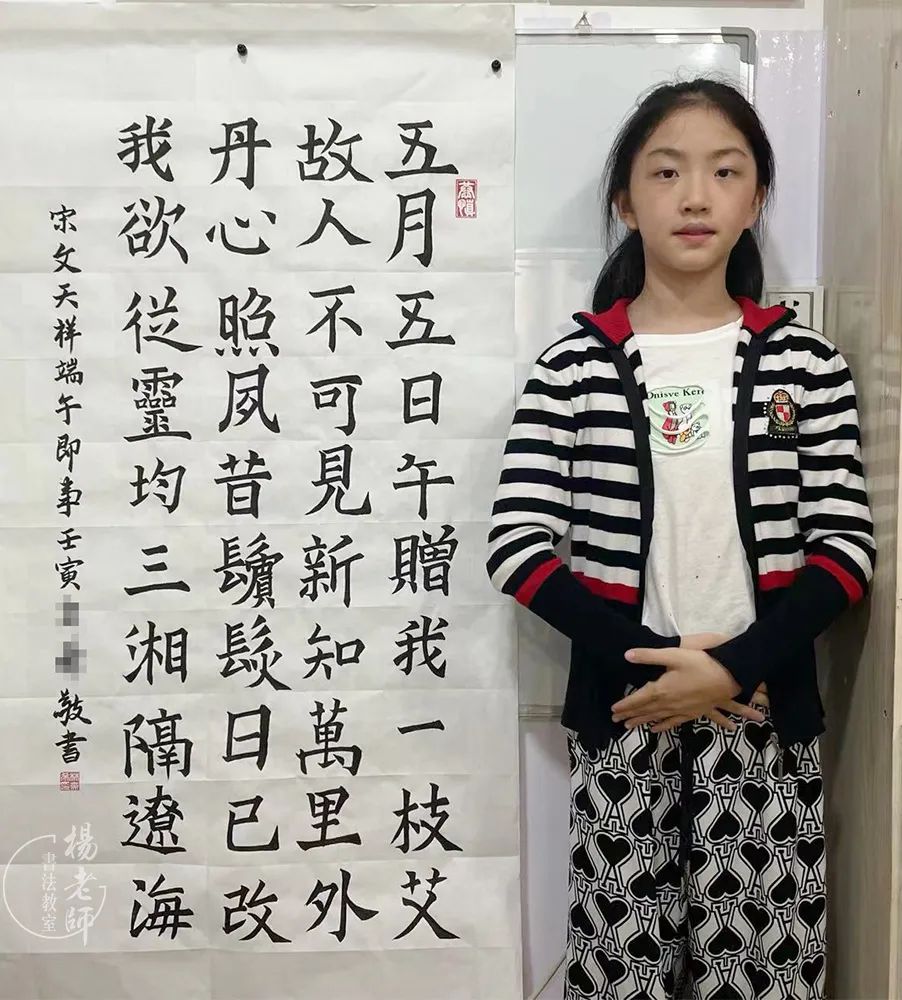 五月五日午贈我一枝艾
故人不可見新知萬里外
丹心照夙昔鬢髮日已改
我欲從靈均三湘隔遼海
宋文天祥端午即事壬寅敬書
楊老師
書法教室